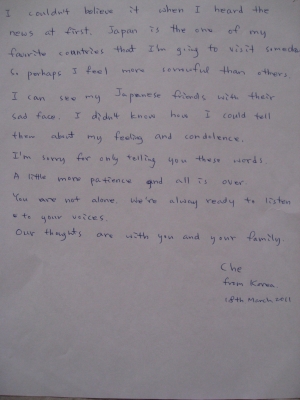 I couldn't believe it when I heard the
news at first. Japan is the one of my
favorite countries that I'm going to visit someda
So perhaps I feel more sorrowful than others.
I can see my Japanese friends with their
sad face. I didn't know how I could tell
them about my feeling and condolence.
I'm sorry for only telling you these words.
A little more patience and all is over.
You are not alone. We're alway ready to listen
to your voices.
Our thoughts are with you and your family.
Che
from Korea
18th March 2011